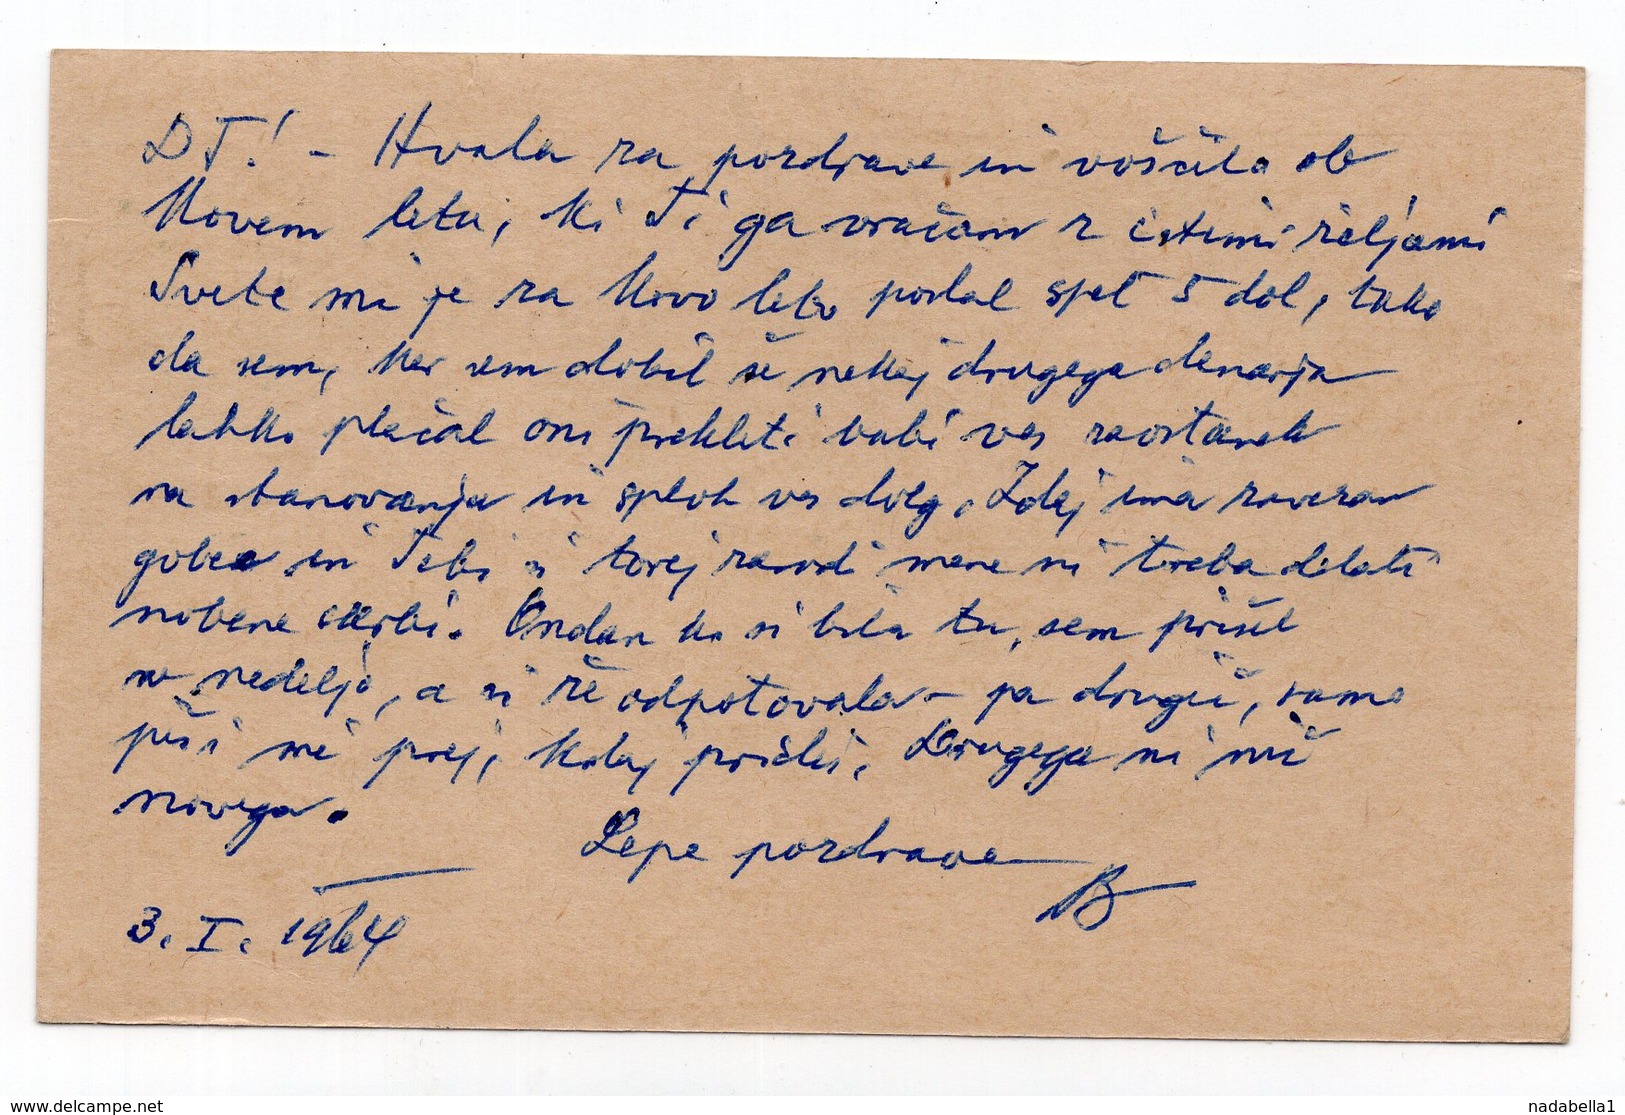 DT! - Hvala za pozdrave in voščila ob
Novem letu, ki Ti ga vračam z istimi željami
Svete mi je za Novo leto poslal spet 5 dol, tako
da sem, ker sem dobil še nekaj drugega denarja
lahko plačal oni prekleti babi ves zaostanek
na stanovanju in sploh ves dolg. Zdaj ima zavezan
gobec in Tebi si torej zaradi mene ni treba delati
nobene skrbi. Ondan ko si bila tu, sem prišel
v nedeljo, a si že odpotovala - pa drugič, samo
piši mi prej, kdaj prideš. Drugega ni nič
novega.
Lepe pozdrave
B
3. I. 1964
www.delcampe.net
nadabella1